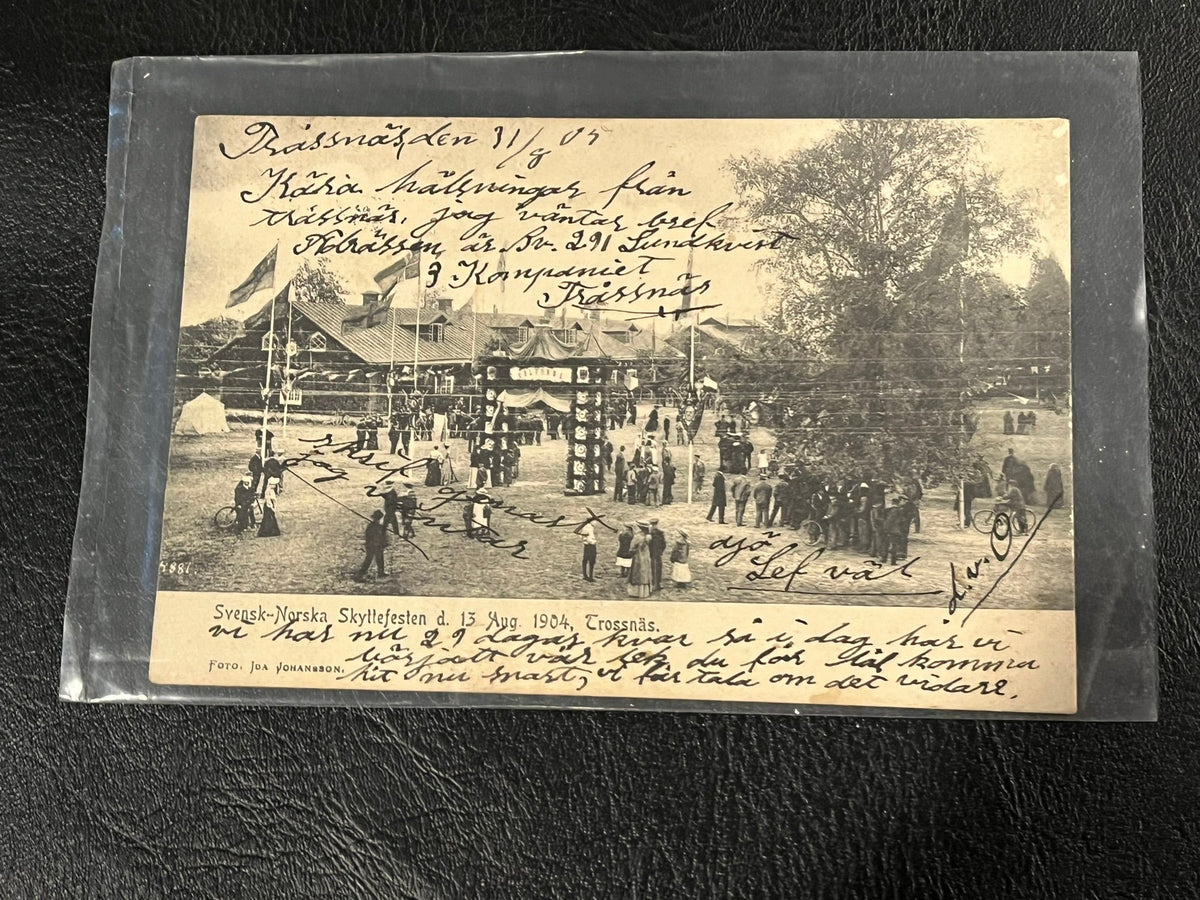 Tråssnäs, den 31/8 05
Kära hälsningar från
tråssnäs, jag väntar bref
Adrässen är Bv. 291 Lundkvist
3 Kompaniet
Tråssnäs
skrif genast
jag väntar
djö
Lef väl
d.v.O
4881
Svensk-Norska Skyttefesten d. 13 Aug. 1904, Trossnäs.
vi har nu 29 dagar kvar så i dag har vi
börjatt vår du får väl komma
FOTO. IDA JOHANSSON.
hit nu snart, vi får tala om det vidare.